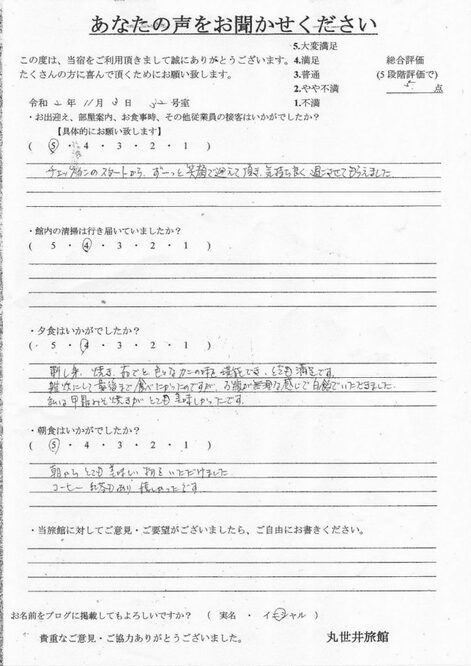 あなたの声をお聞かせください
この度は、当宿をご利用頂きまして誠にありがとうございます。
たくさんの方に喜んで頂くためにお願い致します。
5.大変満足
4.満足
3.普通
2.やや不満
1.不満
総合評価
(5段階評価で)
5 点
令和 2 年 11 月 3 日 号室
・お出迎え、部屋案内、お食事時、その他従業員の接客はいかがでしたか？
【具体的にお願い致します】
( 5 ・ 4 ・ 3 ・ 2 ・ 1 )
チェックインのスタートから、ずーっと笑顔で迎えて頂き、気持ち良く過ごさせてもらえました
・館内の清掃は行き届いていましたか？
( 5 ・ 4 ・ 3 ・ 2 ・ 1 )
・夕食はいかがでしたか？
( 5 ・ 4 ・ 3 ・ 2 ・ 1 )
刺し身、焼き、茹でと、色々なカニの味を堪能でき、とても満足です。
雑炊にして最後まで食べたかったのですが、お腹が無理な感じで白飯でいただきました。
私は甲羅みそ焼きがとても美味しかったです。
・朝食はいかがでしたか？
( 5 ・ 4 ・ 3 ・ 2 ・ 1 )
朝からとても美味しい をいただけました
コーヒー、紅茶もあり、嬉しかったです
・当旅館に対してご意見・ご要望がございましたら、ご自由にお書きください。
お名前をブログに掲載してもよろしいですか？ ( 実名 ・ イニシャル )
貴重なご意見・ご協力ありがとうございました。
丸世井旅館